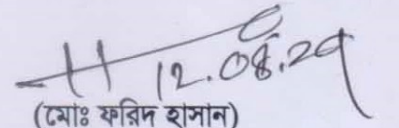 12.08.29
(মোঃ ফরিদ হাসান)